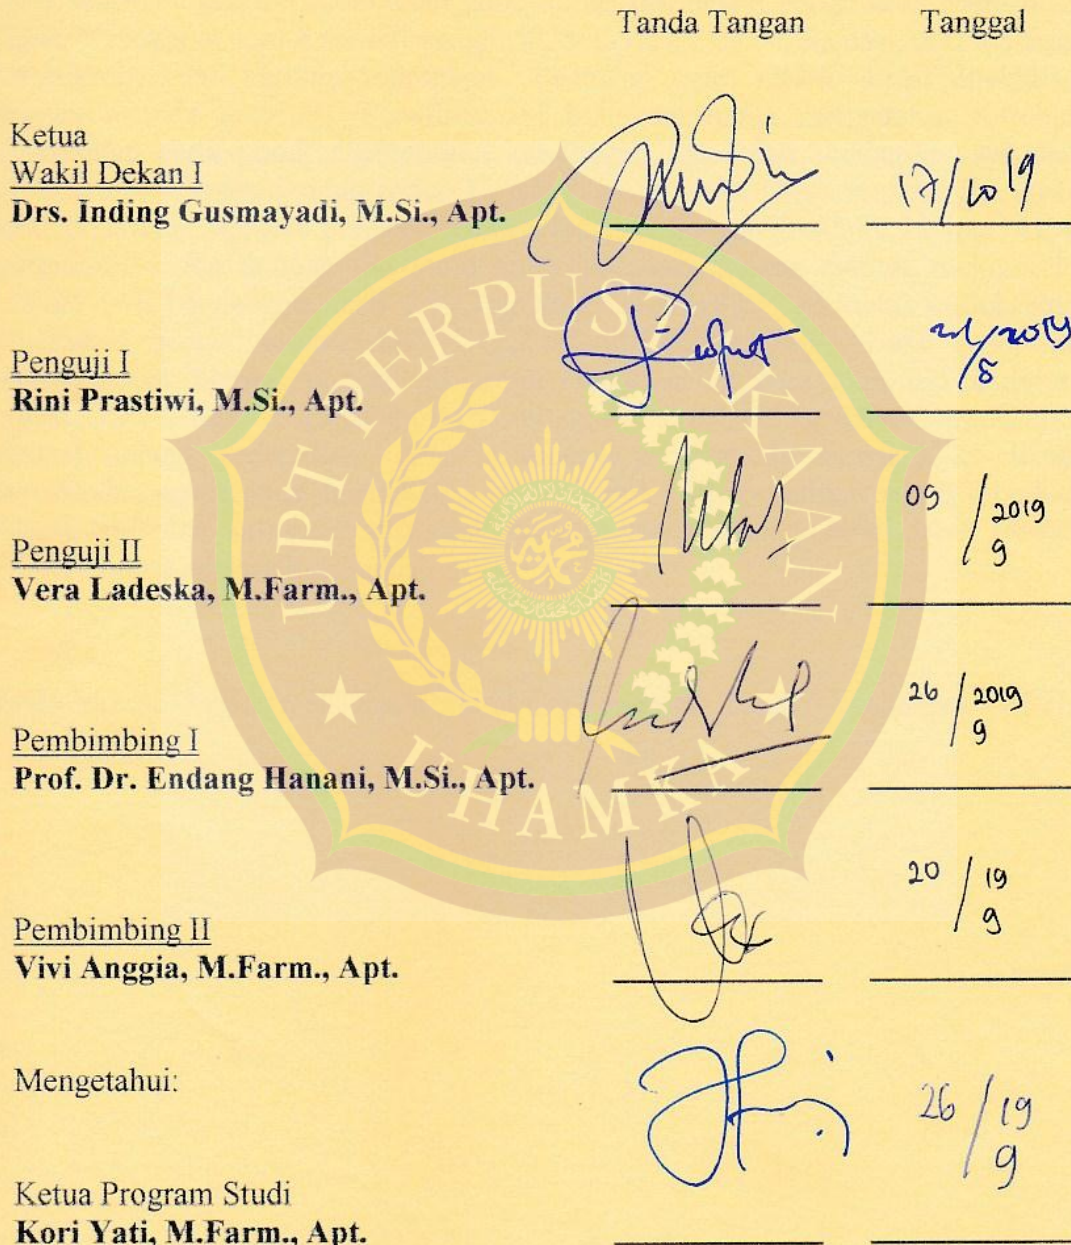 Tanda Tangan Tanggal
Ketua
Wakil Dekan I
Drs. Inding Gusmayadi, M.Si., Apt. 17/10 19
Penguji I
Rini Prastiwi, M.Si., Apt. /2019
8
Penguji II 09 / 2019
9
Vera Ladeska, M.Farm., Apt.
Pembimbing I 26 / 2019
9
Prof. Dr. Endang Hanani, M.Si., Apt.
Pembimbing II 20 / 19
9
Vivi Anggia, M.Farm., Apt.
Mengetahui: 26 / 19
9
Ketua Program Studi
Kori Yati, M.Farm., Apt.
UPT PERPUSTAKAAN
UHAMKA